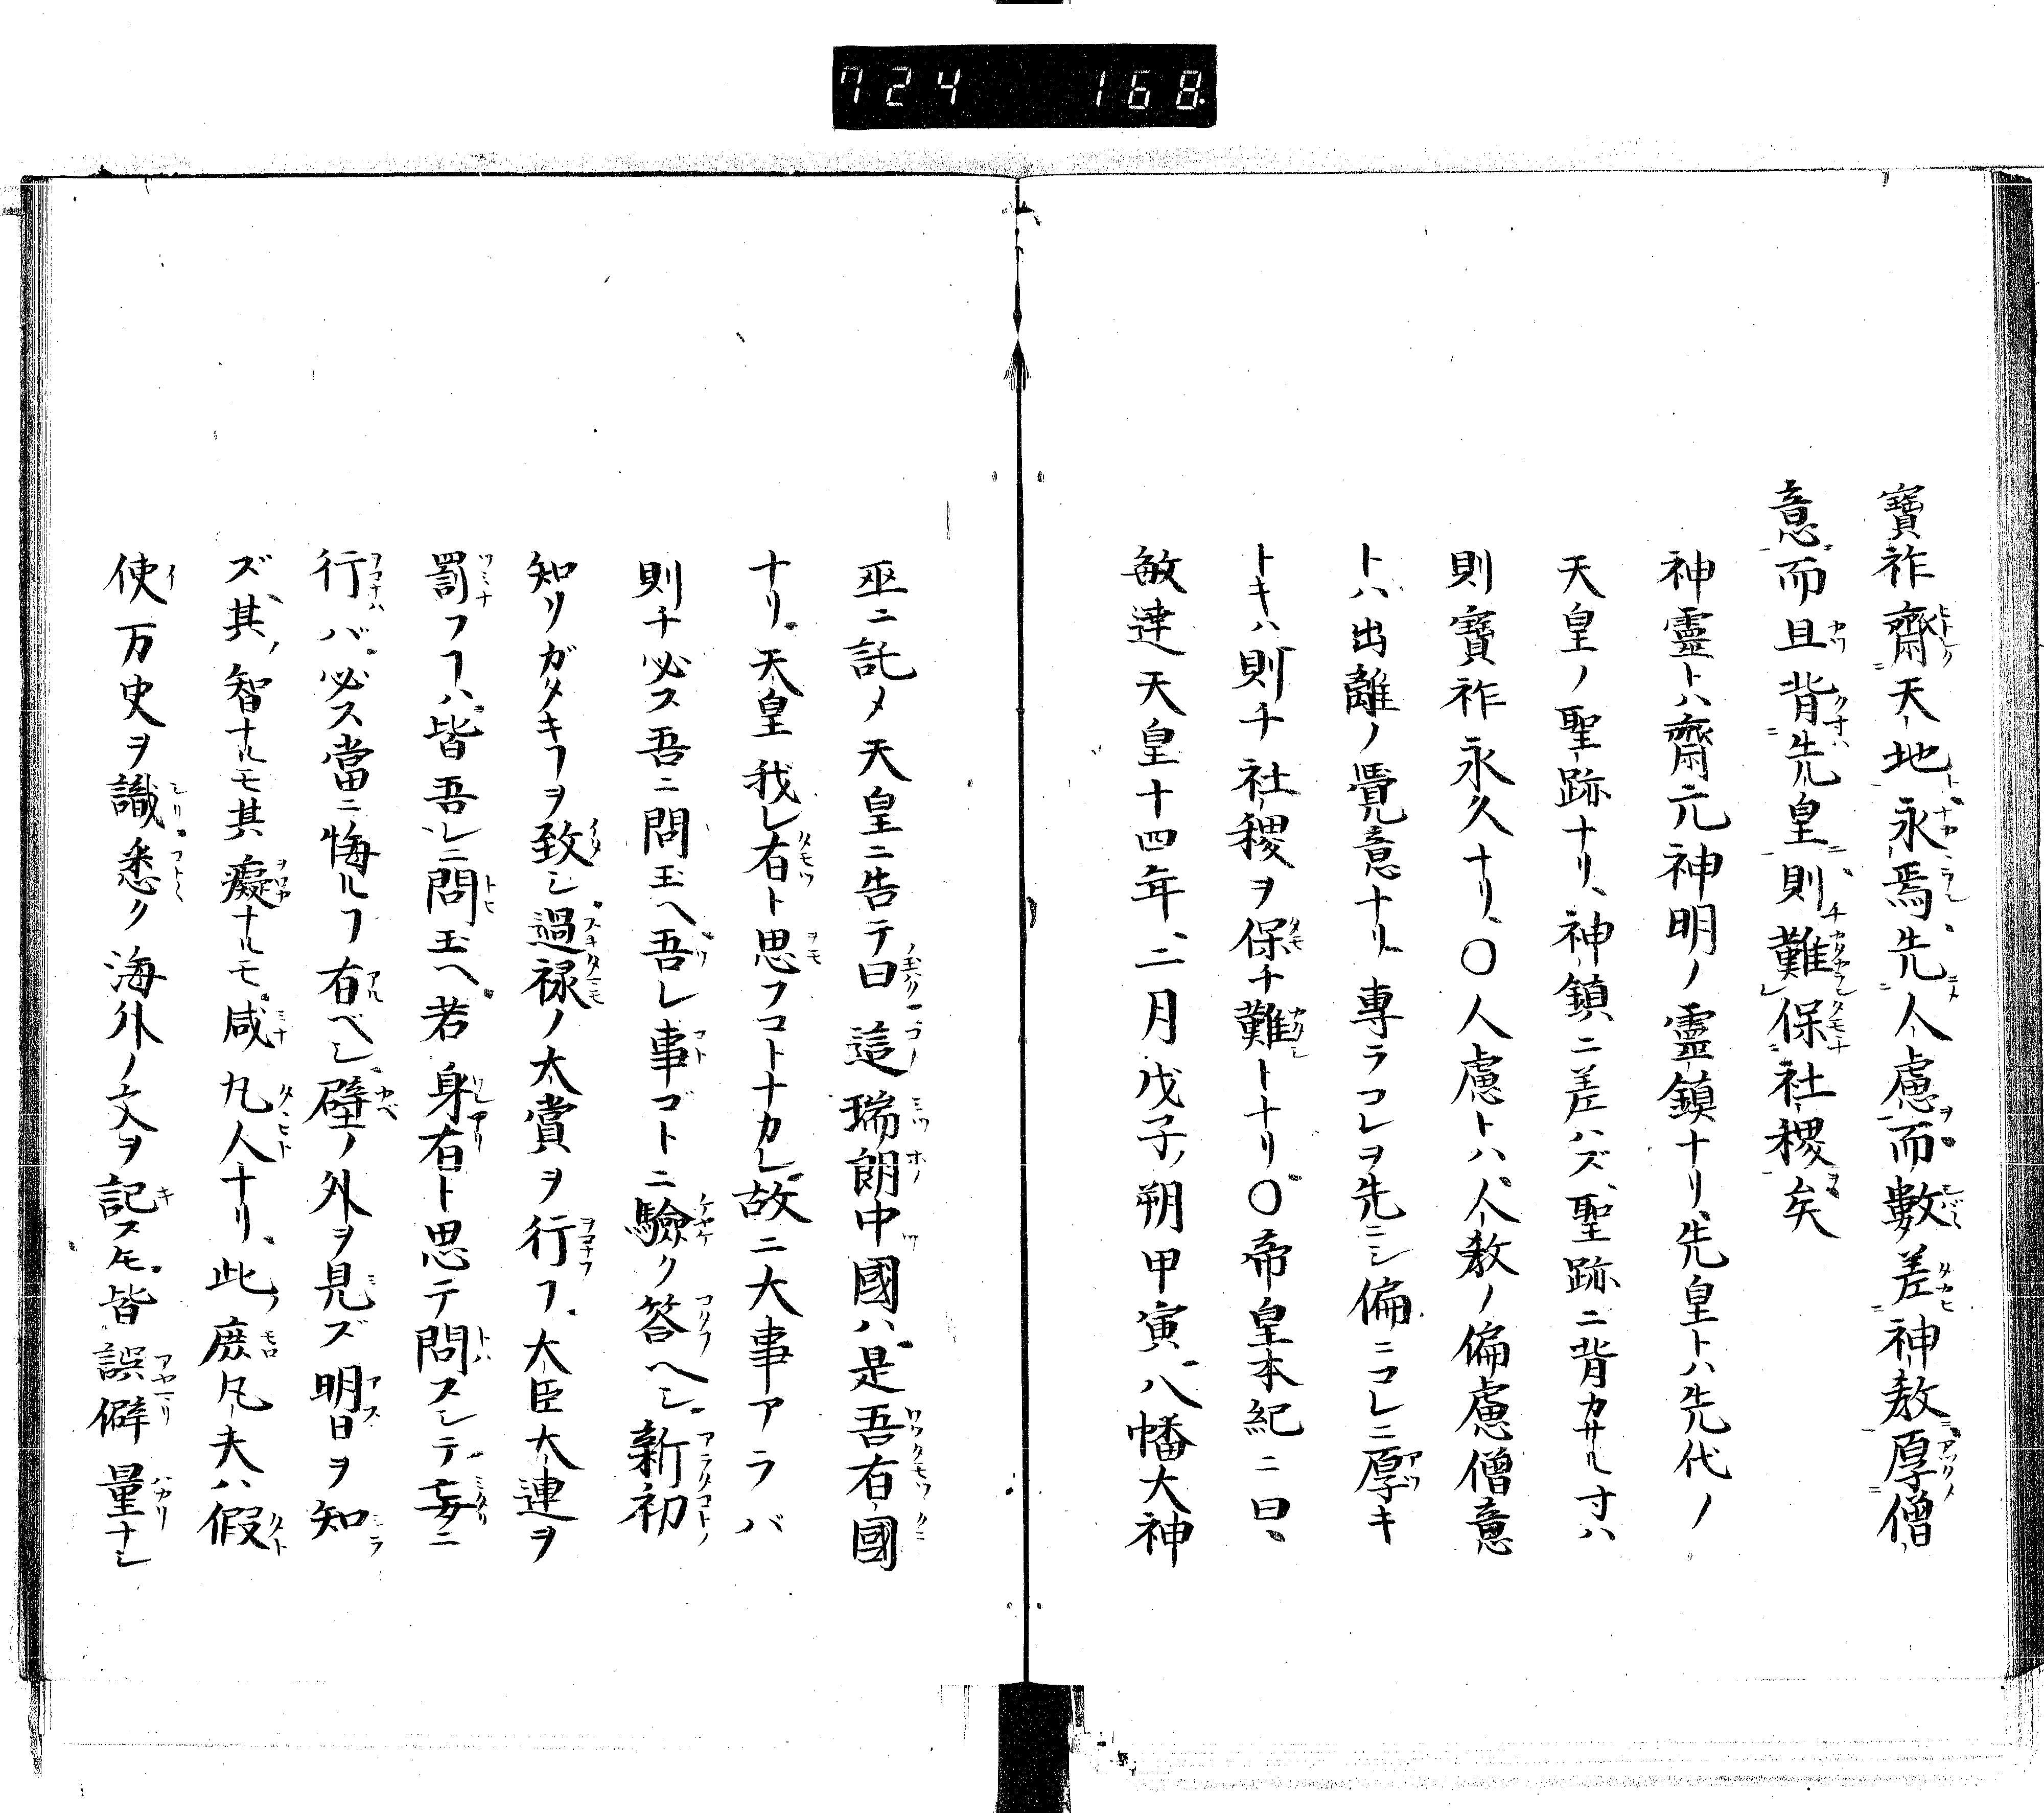 724 168
寶祚齋天地永焉先人慮而數差神敎厚僧
意而且背先皇則難保社稷矣
神靈トハ齋元神明ノ靈鎮ナリ先皇トハ先代ノ
天皇ノ聖跡ナリ、神鎮ニ差ハズ聖跡ニ背カサル寸ハ
則寶祚永久ナリ、〇人慮トハ人敎ノ偏慮僧意
トハ出離ノ覺意ナリ專ラコレヲ先ニシ偏ニコレニ厚キ
トキハ則チ社稷ヲ保チ難トナリ〇帝皇本紀ニ曰、
敏達天皇十四年、二月戊子朔甲寅八幡大神
巫ニ託メ天皇ニ告テ曰這瑞朗中國ハ是吾有國
ナリ天皇我レ有ト思フコトナカレ故ニ大事アラバ
則チ必ス吾ニ問玉ヘ吾レ事ゴトニ驗ク答ヘシ新初
知リガタキヿヲ致シ過禄ノ太賞ヲ行フ大臣大連ヲ
罰フヿハ皆吾レニ問玉ヘ若身有ト思テ問スシテ妄ニ
行バ必ス當ニ悔ルヿ有ベシ壁ノ外ヲ見ズ明日ヲ知
ズ其智ナルモ其癡ナルモ咸凡人ナリ、此庶凡夫ハ假
使万史ヲ識悉ク海外ノ文ヲ記スモ皆誤僻量ナシ